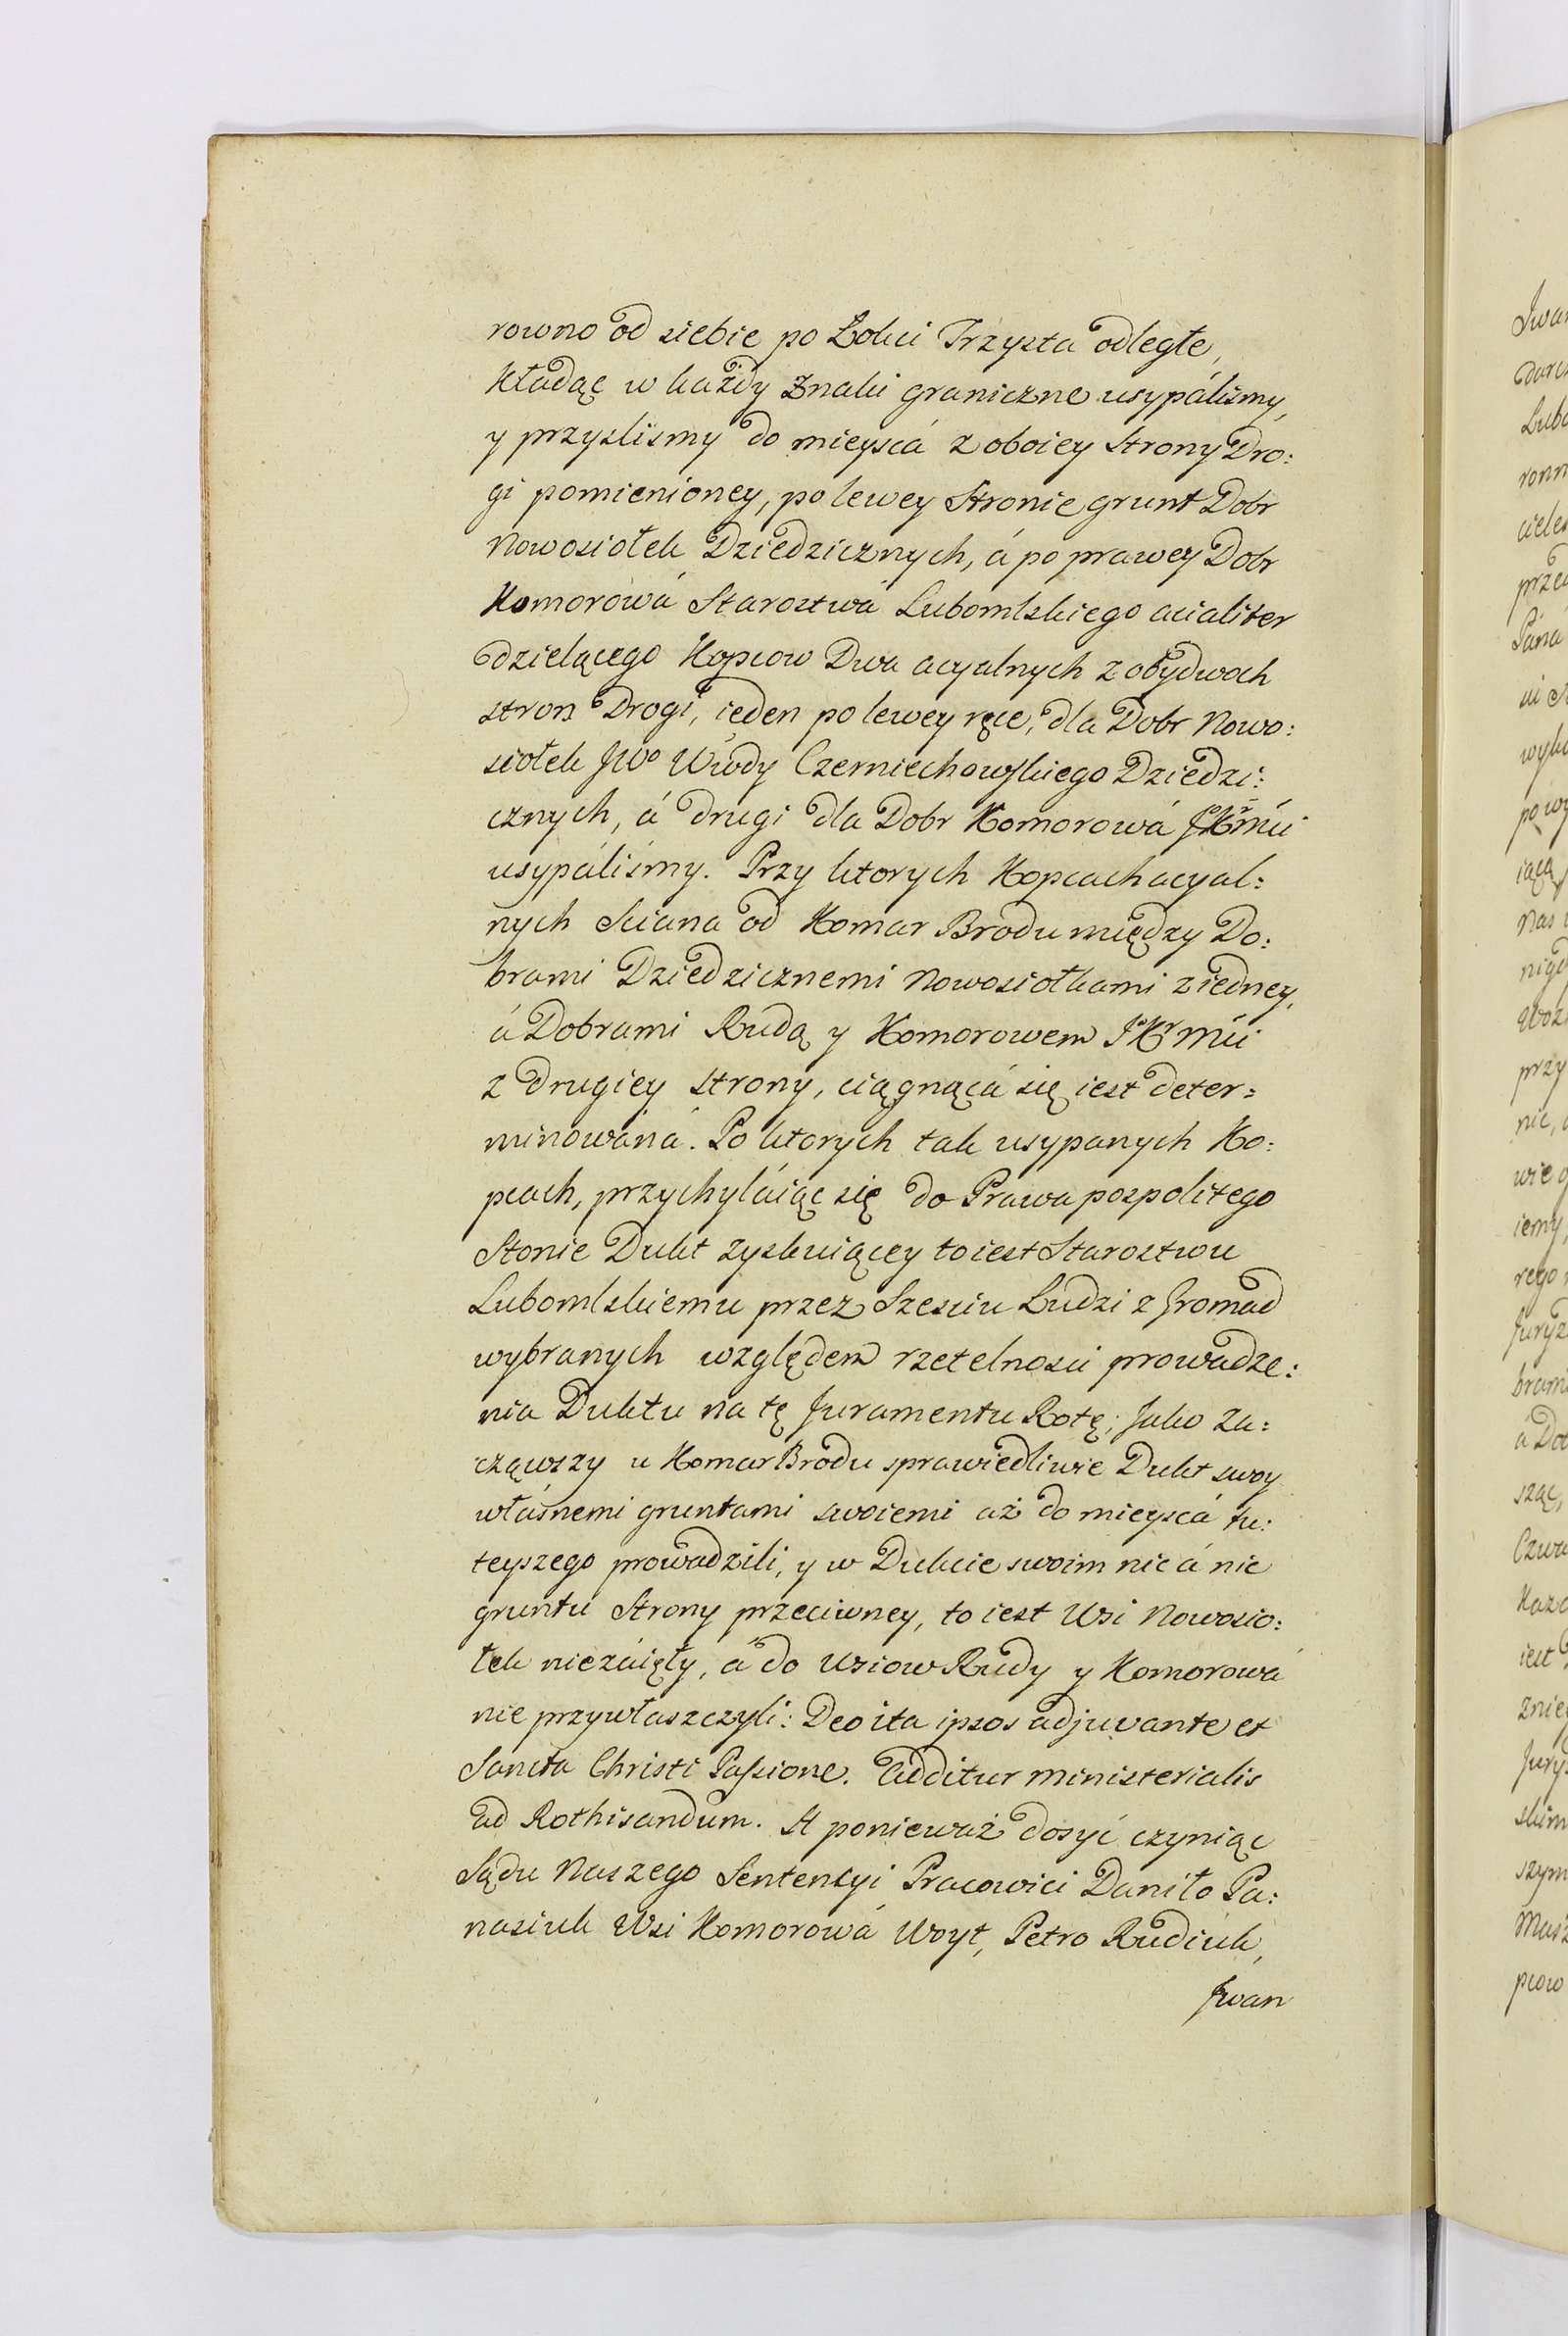 rowno od siebie po Łokci Trzysta odległe,
Kładąc w każdy Znaki graniczne usypáliśmy,
y przyslismy do mieyscá z oboiey Strony Dro:
gi pomienioney, po lewey Stronie grunt Dobr
Nowosiołek Dziedzicznych, á po prawey Dobr
Komorowá Starostwá Lubomlskiego acialiter
dzielącego Kopcow Dwa acyalnych z obydwoch
stron Drogi, ieden po lewey ręce, dla Dobr Nowo:
siołek JWo Wwdy Czerniechowskiego Dziedzi:
cznych, á drugi dla Dobr Komorowá JKrMci
usypáliśmy. Przy ktorych Kopcach acyal:
nych Sciana od Komar Brodu między Do:
brami Dziedzicznemi Nowosiołkami z iedney,
á Dobrami Rudą y Komorowem JKrMci
z drugiey strony, ciągnącá się iest deter:
minowáná. Po ktorych tak usypanych Ko:
pcach, przychyláiąc się do Prawa pospolitego
Stonie Dukt zyskuiącey to iest Starostwu
Lubomlskiemu przez Szesciu Ludzi z Gromad
wybranych względem rzetelnosci prowadze:
nia Duktu na tę Juramentu Rotę; Jako Za:
cząwszy u Komar Brodu sprawiedliwie Dukt swoy
własnemi gruntami swoiemi aż do mieyscá tu:
teyszego prowadzili, y w Dukcie swoim nic á nic
gruntu Strony przeciwney, to iest Wsi Nowosio:
łek niezáięły, á do Wsiow Rudy y Komorowá
nie przywłaszczyli: Deo ita ipsos adjuvante et
Sancta Christi Passione. Additur Ministerialis
ad Rothisandum. A ponieważ dosyć czyniąc
Sądu Naszego Sentencyi Pracowici Daniło Pa:
nasiuk Wsi Komorowá Woyt, Petro Rudiuk,
Jwan